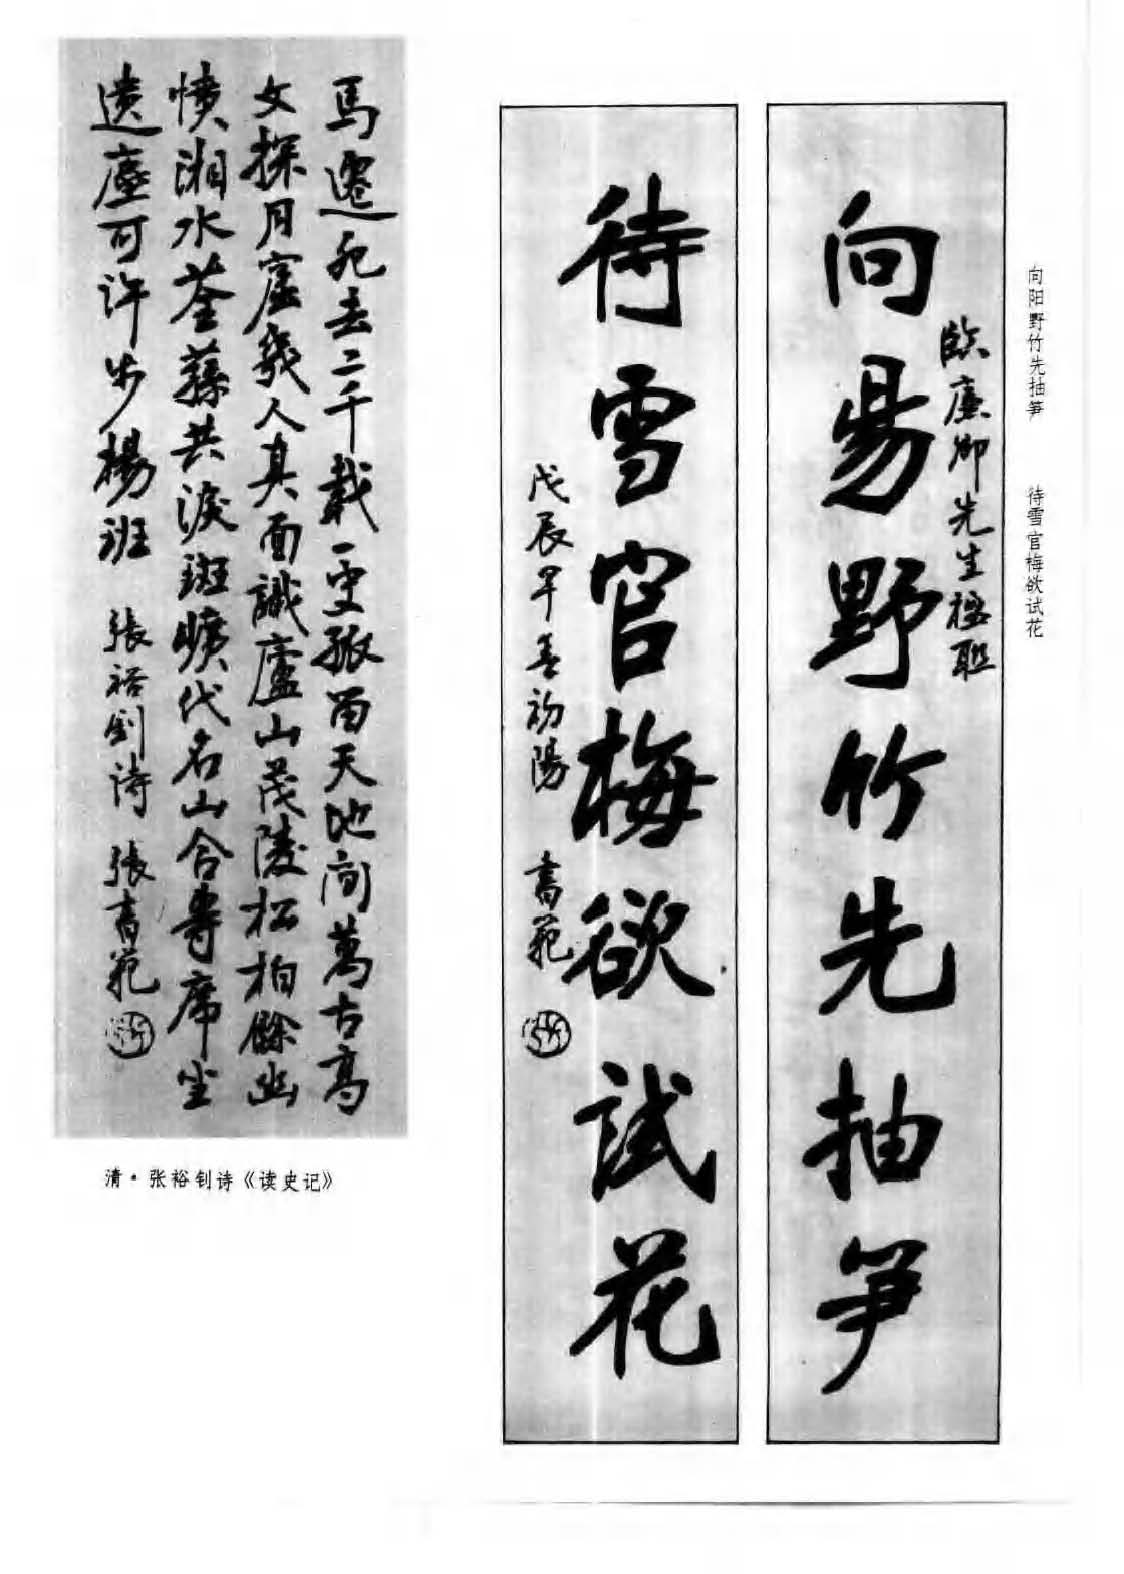 向阳野竹先抽笋 待雪官梅欲试花
臨廉卿先生楹联
向昜野竹先抽笋
待雪官梅欲試花
戊辰早春初陽 書範
馬遷死去二千載一史孤留天地間萬古高
文探月窟幾人真面識廬山茂陵松柏餘幽
憤湘水荃蓀共淚斑曠代名山合專席坐
遺塵可許步楊班 張裕釗詩 張書範
清·张裕钊诗《读史记》